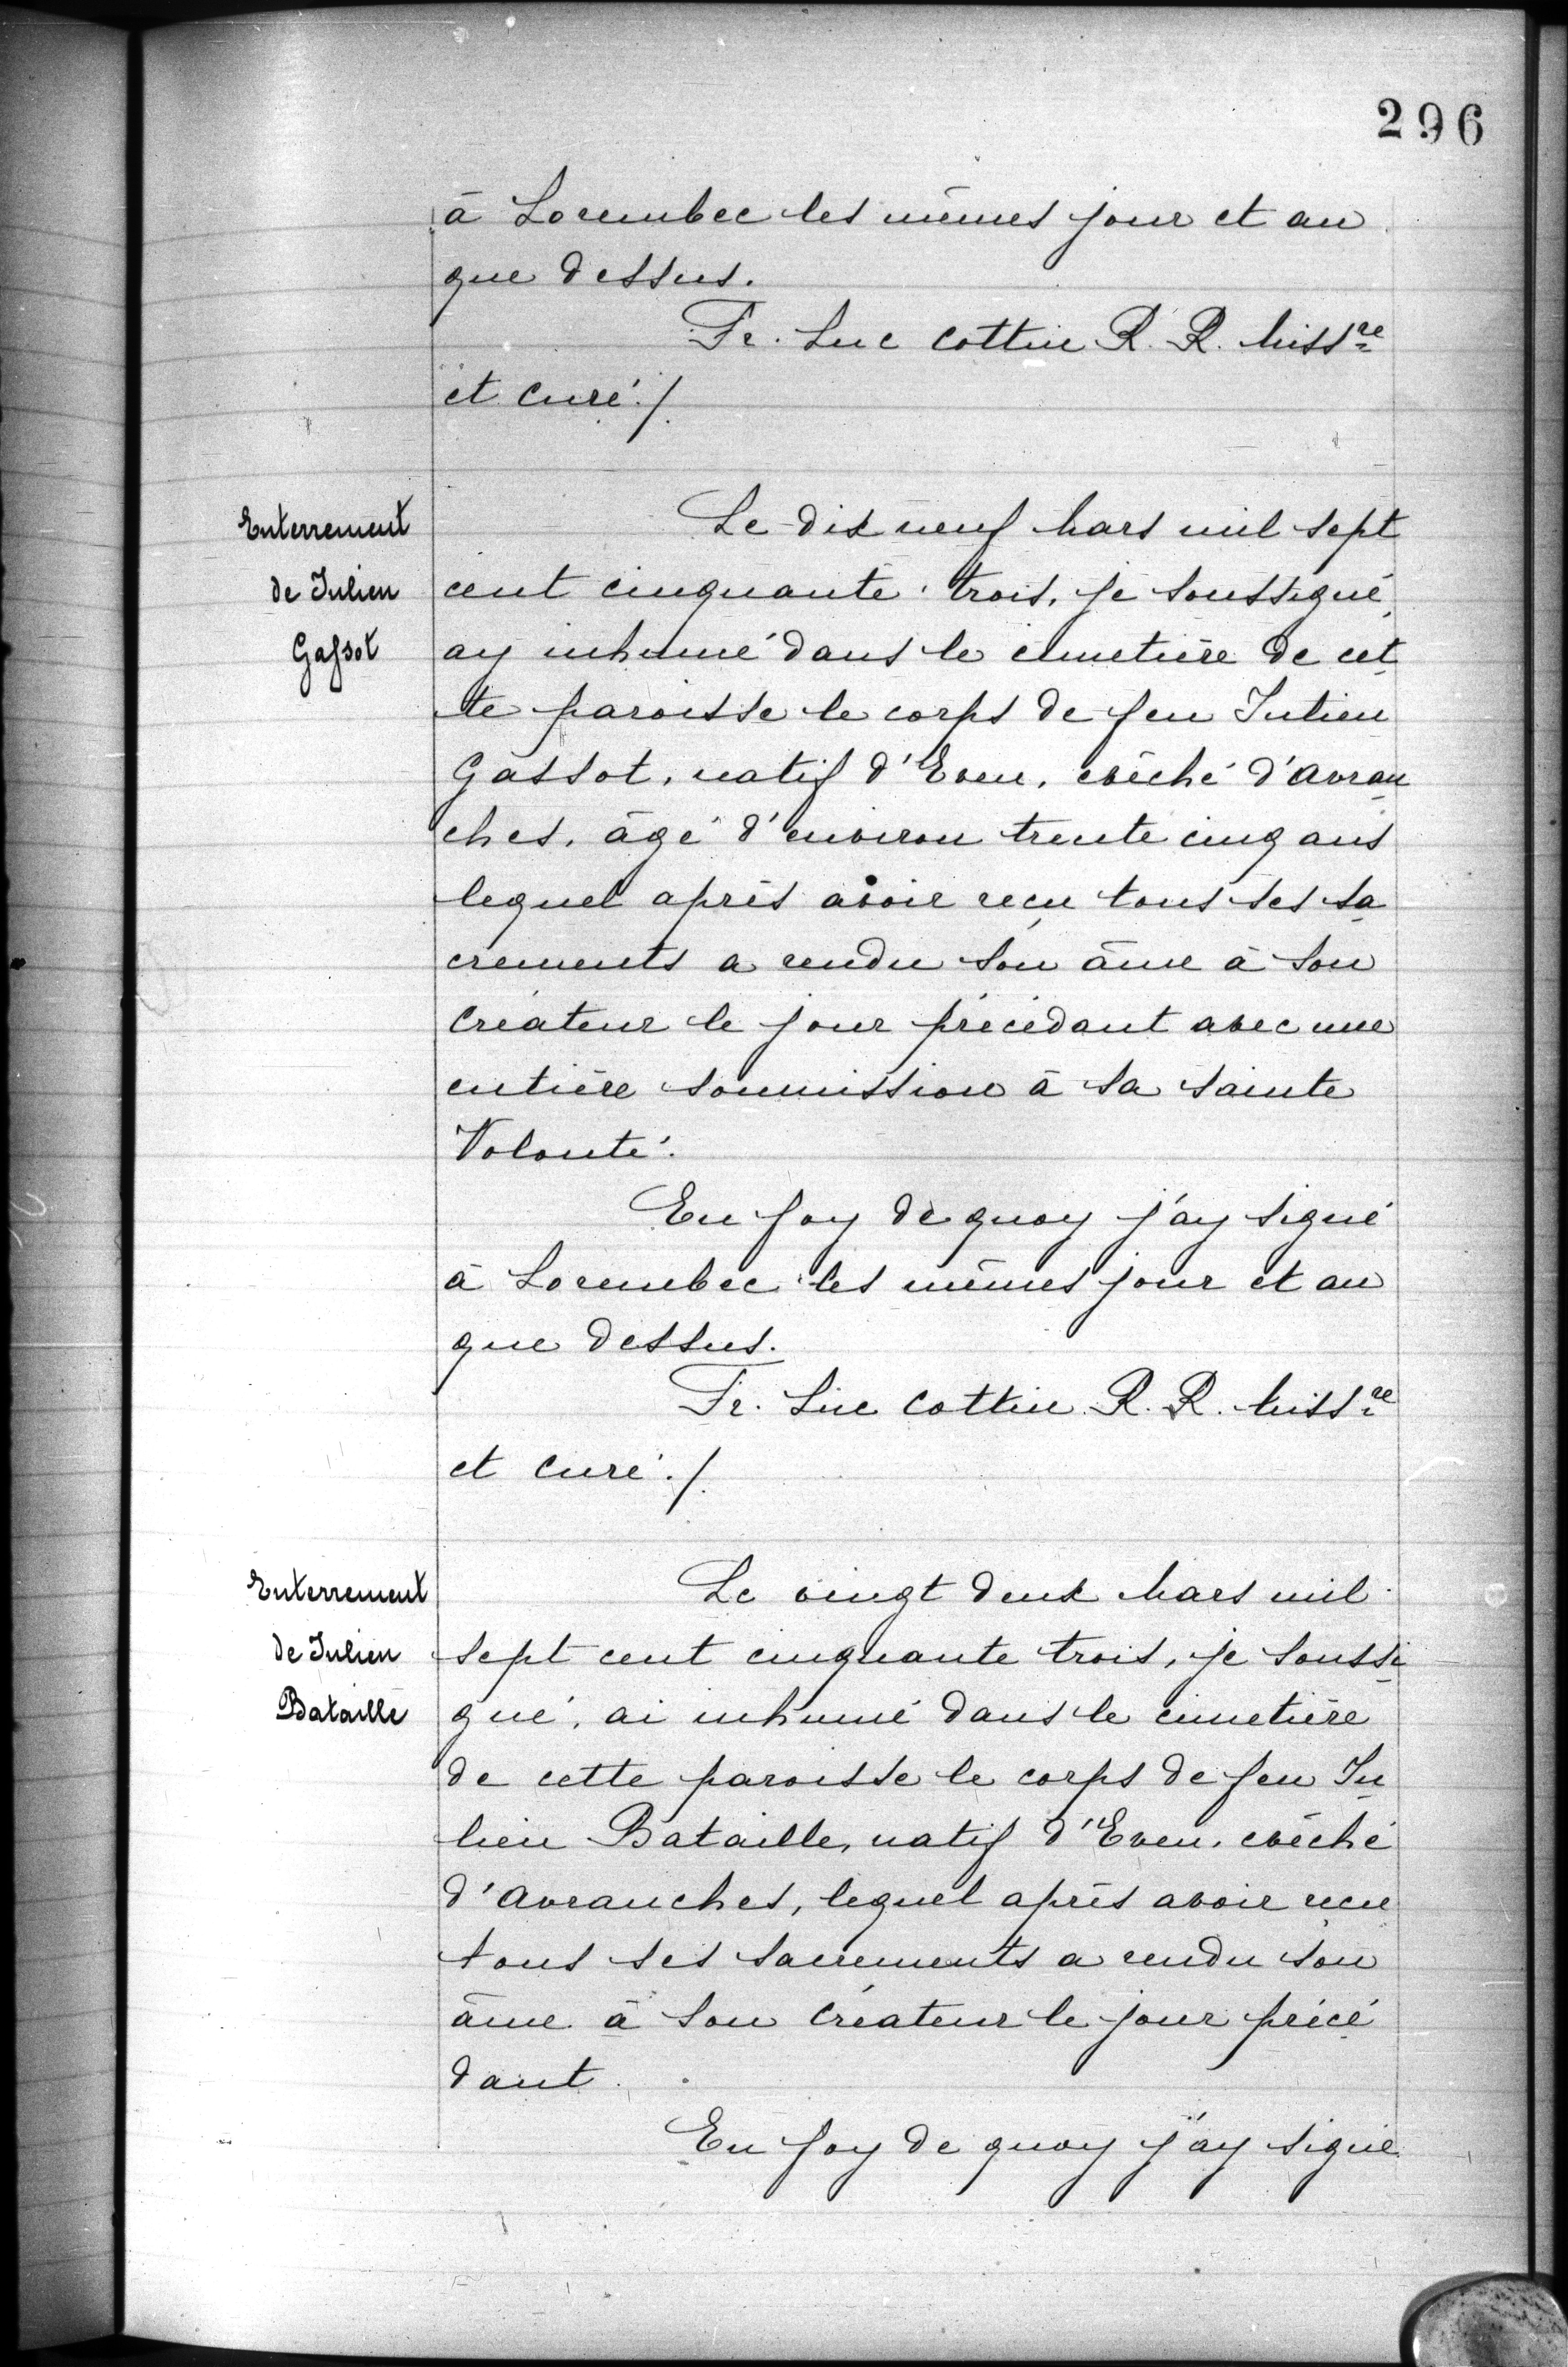 296
à Lorembec les mêmes jour et an
que dessus.
Fr. Luc Cottin R. R. Missre
et curé ./.
Enterrement
de Julien
Gassot
Le dix neuf Mars mil sept
cent cinquante trois, je soussigné,
ay inhumé dans le cimetière de cet
te paroisse le corps de feu Julien
Gassot, natif d'Even, evêché d'Avran
ches, âgé d'environ trente cinq ans
lequel après avoir reçu tous ses sa
crements a rendu son âme à son
Créateur le jour précédant avec une
entière soumission à sa sainte
Volonté.
En foy de quoy j'ay signé
à Lorembec les mêmes jour et an
que dessus.
Fr. Luc Cottin. R. R. Missre
et curé ./.
Enterrement
de Julien
Bataille
Le vingt deux Mars mil
sept cent cinquante trois, je soussi
gné, ai inhumé dans le cimetière
de cette paroisse le corps de feu Ju
lien Bataille, natif d'Even, evêché
d'Avranches, lequel après avoir reçu
tous ses sacrements a rendu son
âme à son Créateur le jour précé
dant.
En foy de quoy j'ay signé